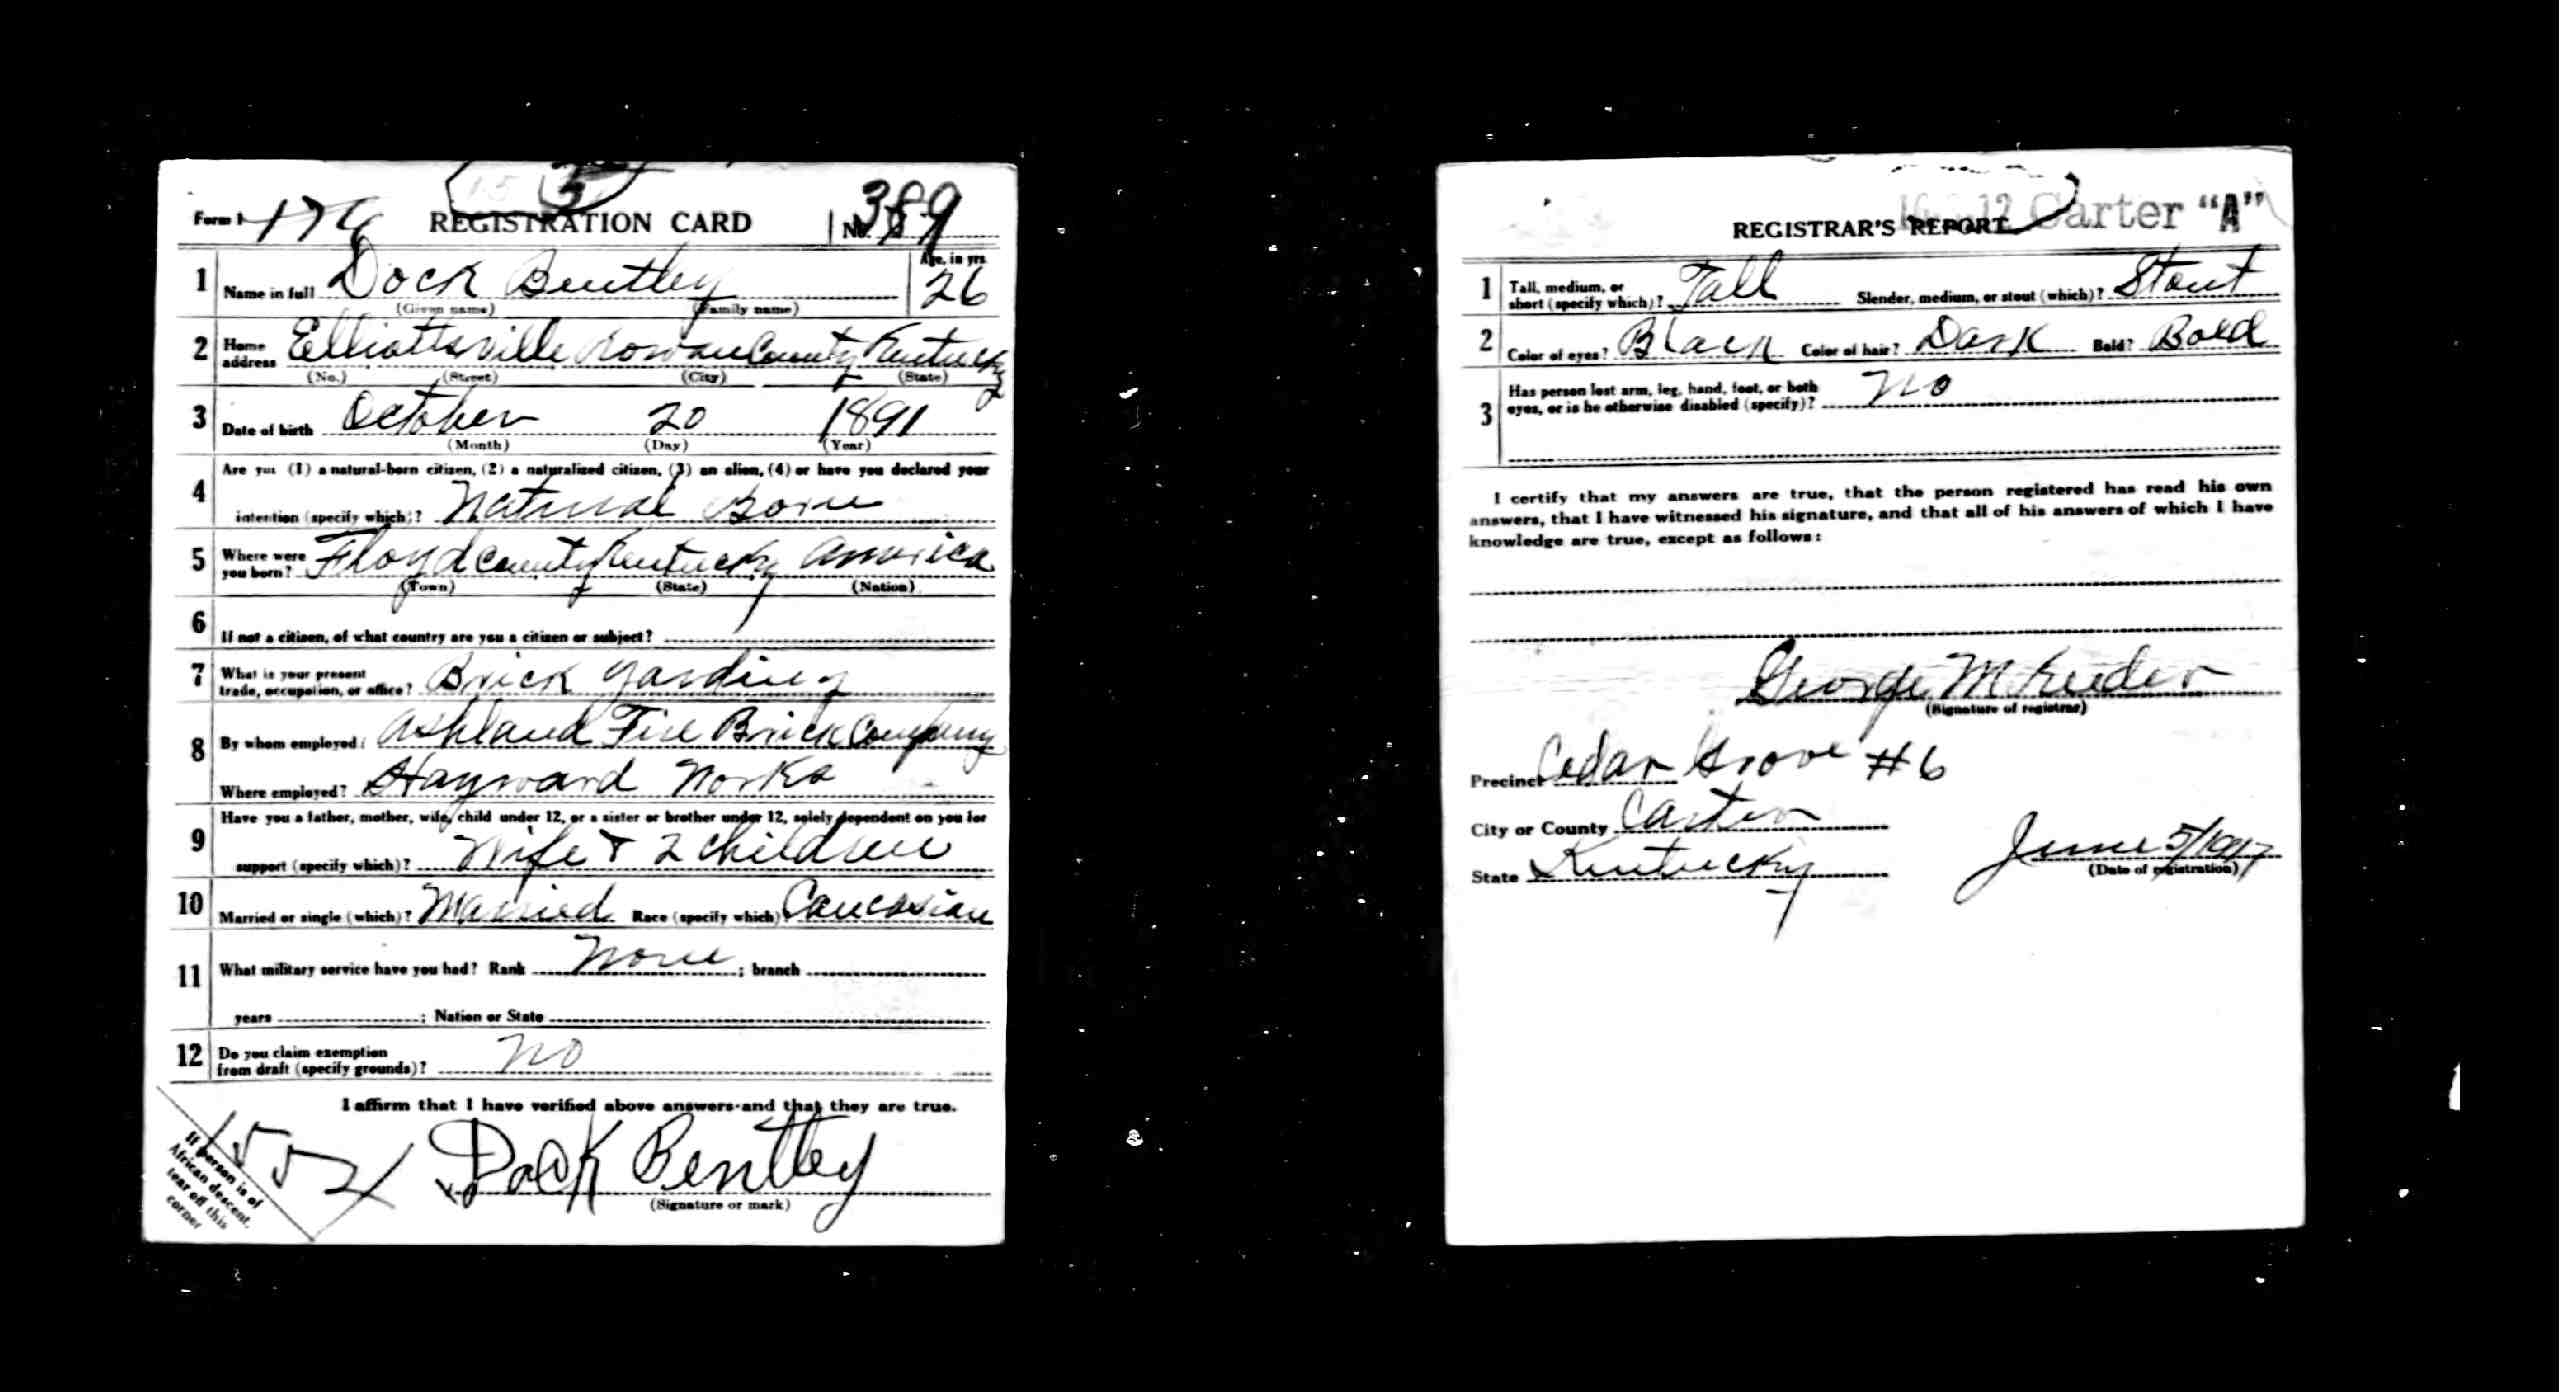 Form 1 176 REGISTRATION CARD No. 389
1 Name in full Dock Bentley Age, in yrs. 26
(Given name) (Family name)
2 Home address Elliottsville Rowan County Kentucky
(No.) (Street) (City) (State)
3 Date of birth October 20 1891
(Month) (Day) (Year)
4 Are you (1) a natural-born citizen, (2) a naturalized citizen, (3) an alien, (4) or have you declared your
intention (specify which)? Natural Borne
5 Where were you born? Floyd County Kentucky America
(Town) (State) (Nation)
6 If not a citizen, of what country are you a citizen or subject?
7 What is your present trade, occupation, or office? Brick yarding
8 By whom employed? Ashland Fire Brick Company
Where employed? Hayward Works
9 Have you a father, mother, wife, child under 12, or a sister or brother under 12, solely dependent on you for
support (specify which)? Wife & 2 children
10 Married or single (which)? Married Race (specify which)? Caucasian
11 What military service have you had? Rank None ; branch
years ; Nation or State
12 Do you claim exemption from draft (specify grounds)? No
I affirm that I have verified above answers and that they are true.
Dock Bentley
(Signature or mark)
If person is of
African descent,
tear off this
corner
REGISTRAR'S REPORT Carter "A"
1 Tall, medium, or short (specify which)? Tall Slender, medium, or stout (which)? Stout
2 Color of eyes? Black Color of hair? Dark Bald? Bald
3 Has person lost arm, leg, hand, foot, or both
eyes, or is he otherwise disabled (specify)? No
I certify that my answers are true, that the person registered has read his own
answers, that I have witnessed his signature, and that all of his answers of which I have
knowledge are true, except as follows:
George M Keeder
(Signature of registrar)
Precinct Cedar Grove #6
City or County Carter
State Kentucky
June 5/1917
(Date of registration)